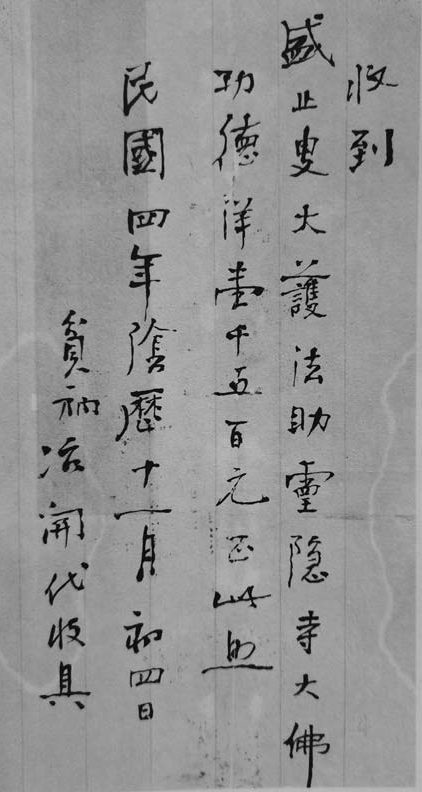 收到
盛止叟大護法助靈隱寺大佛
功德洋壹千五百元正此照
民國四年陰歷十一月初四日
貧衲冶開代收具